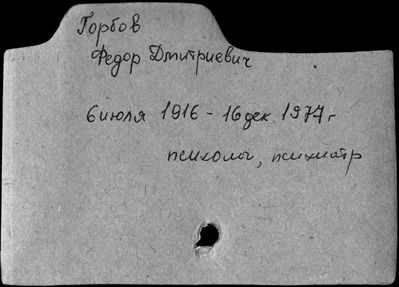 Горбов
Федор Дмитриевич
6 июля 1916 - 16 дек. 1977 г
психолог, психиатр